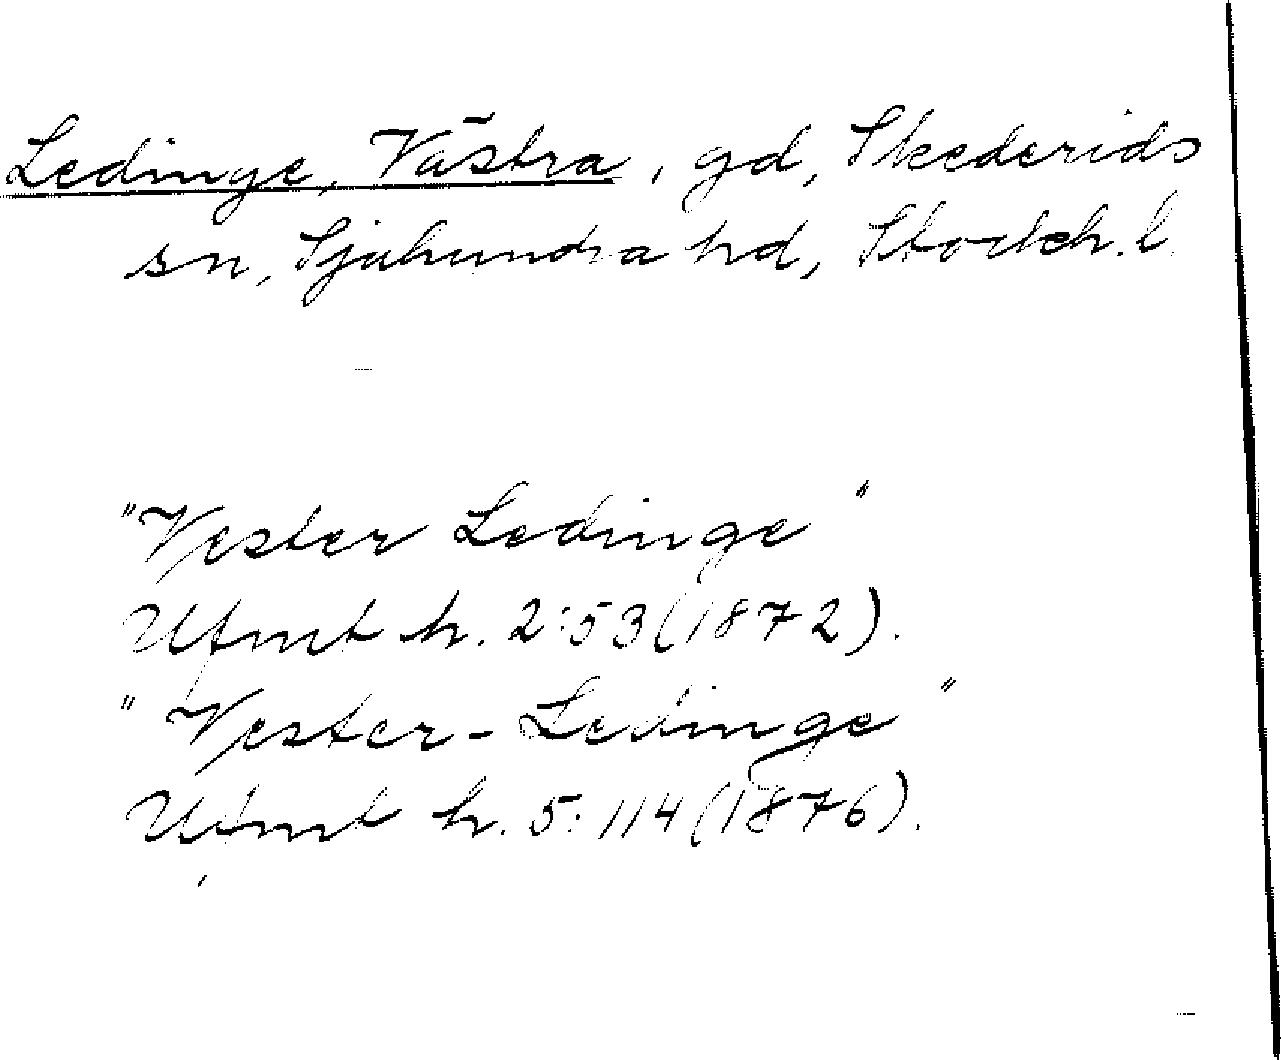 Ledinge, Västra, gd, Skederids
sn, Sjuhundra hd, Stockh. l.
"Vester Ledinge"
Ufmt h. 2:53 (1872).
"Vester-Ledinge"
Ufmt h. 5:114 (1876).